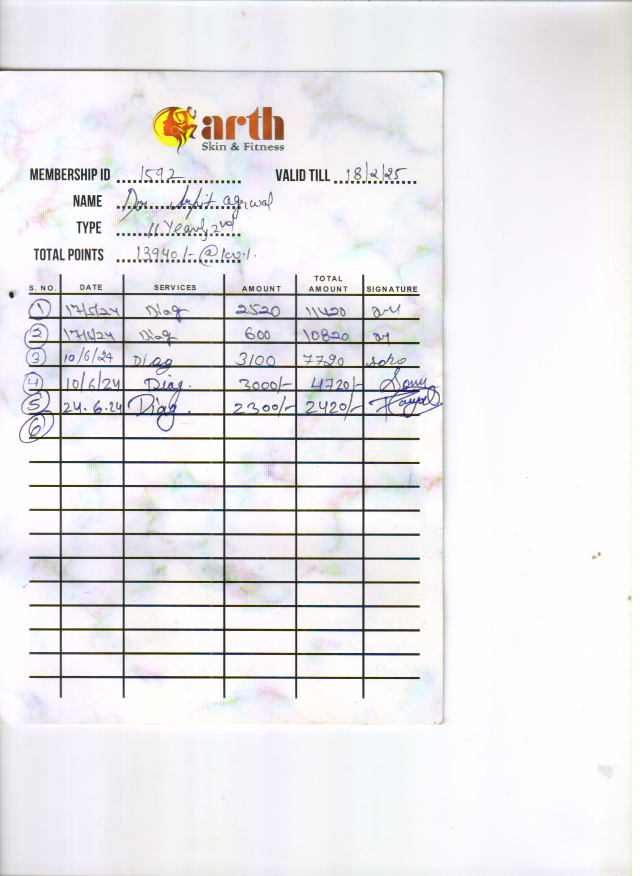 arth
Skin & Fitness
MEMBERSHIP ID 1592 VALID TILL 18/2/25
NAME Dr. Arpit agrwal
TYPE 11 Yearly 2nd
TOTAL POINTS 13940/-
S. NO. DATE SERVICES AMOUNT TOTAL AMOUNT SIGNATURE
1 17/5/24 Diag 2520 11420
2 17/5/24 Diag 600 10820
3 10/6/24 Diag 3100 7720
4 10/6/24 Diag. 3000/- 4720/-
5 24.6.24 Diag. 2300/- 2420/-
6